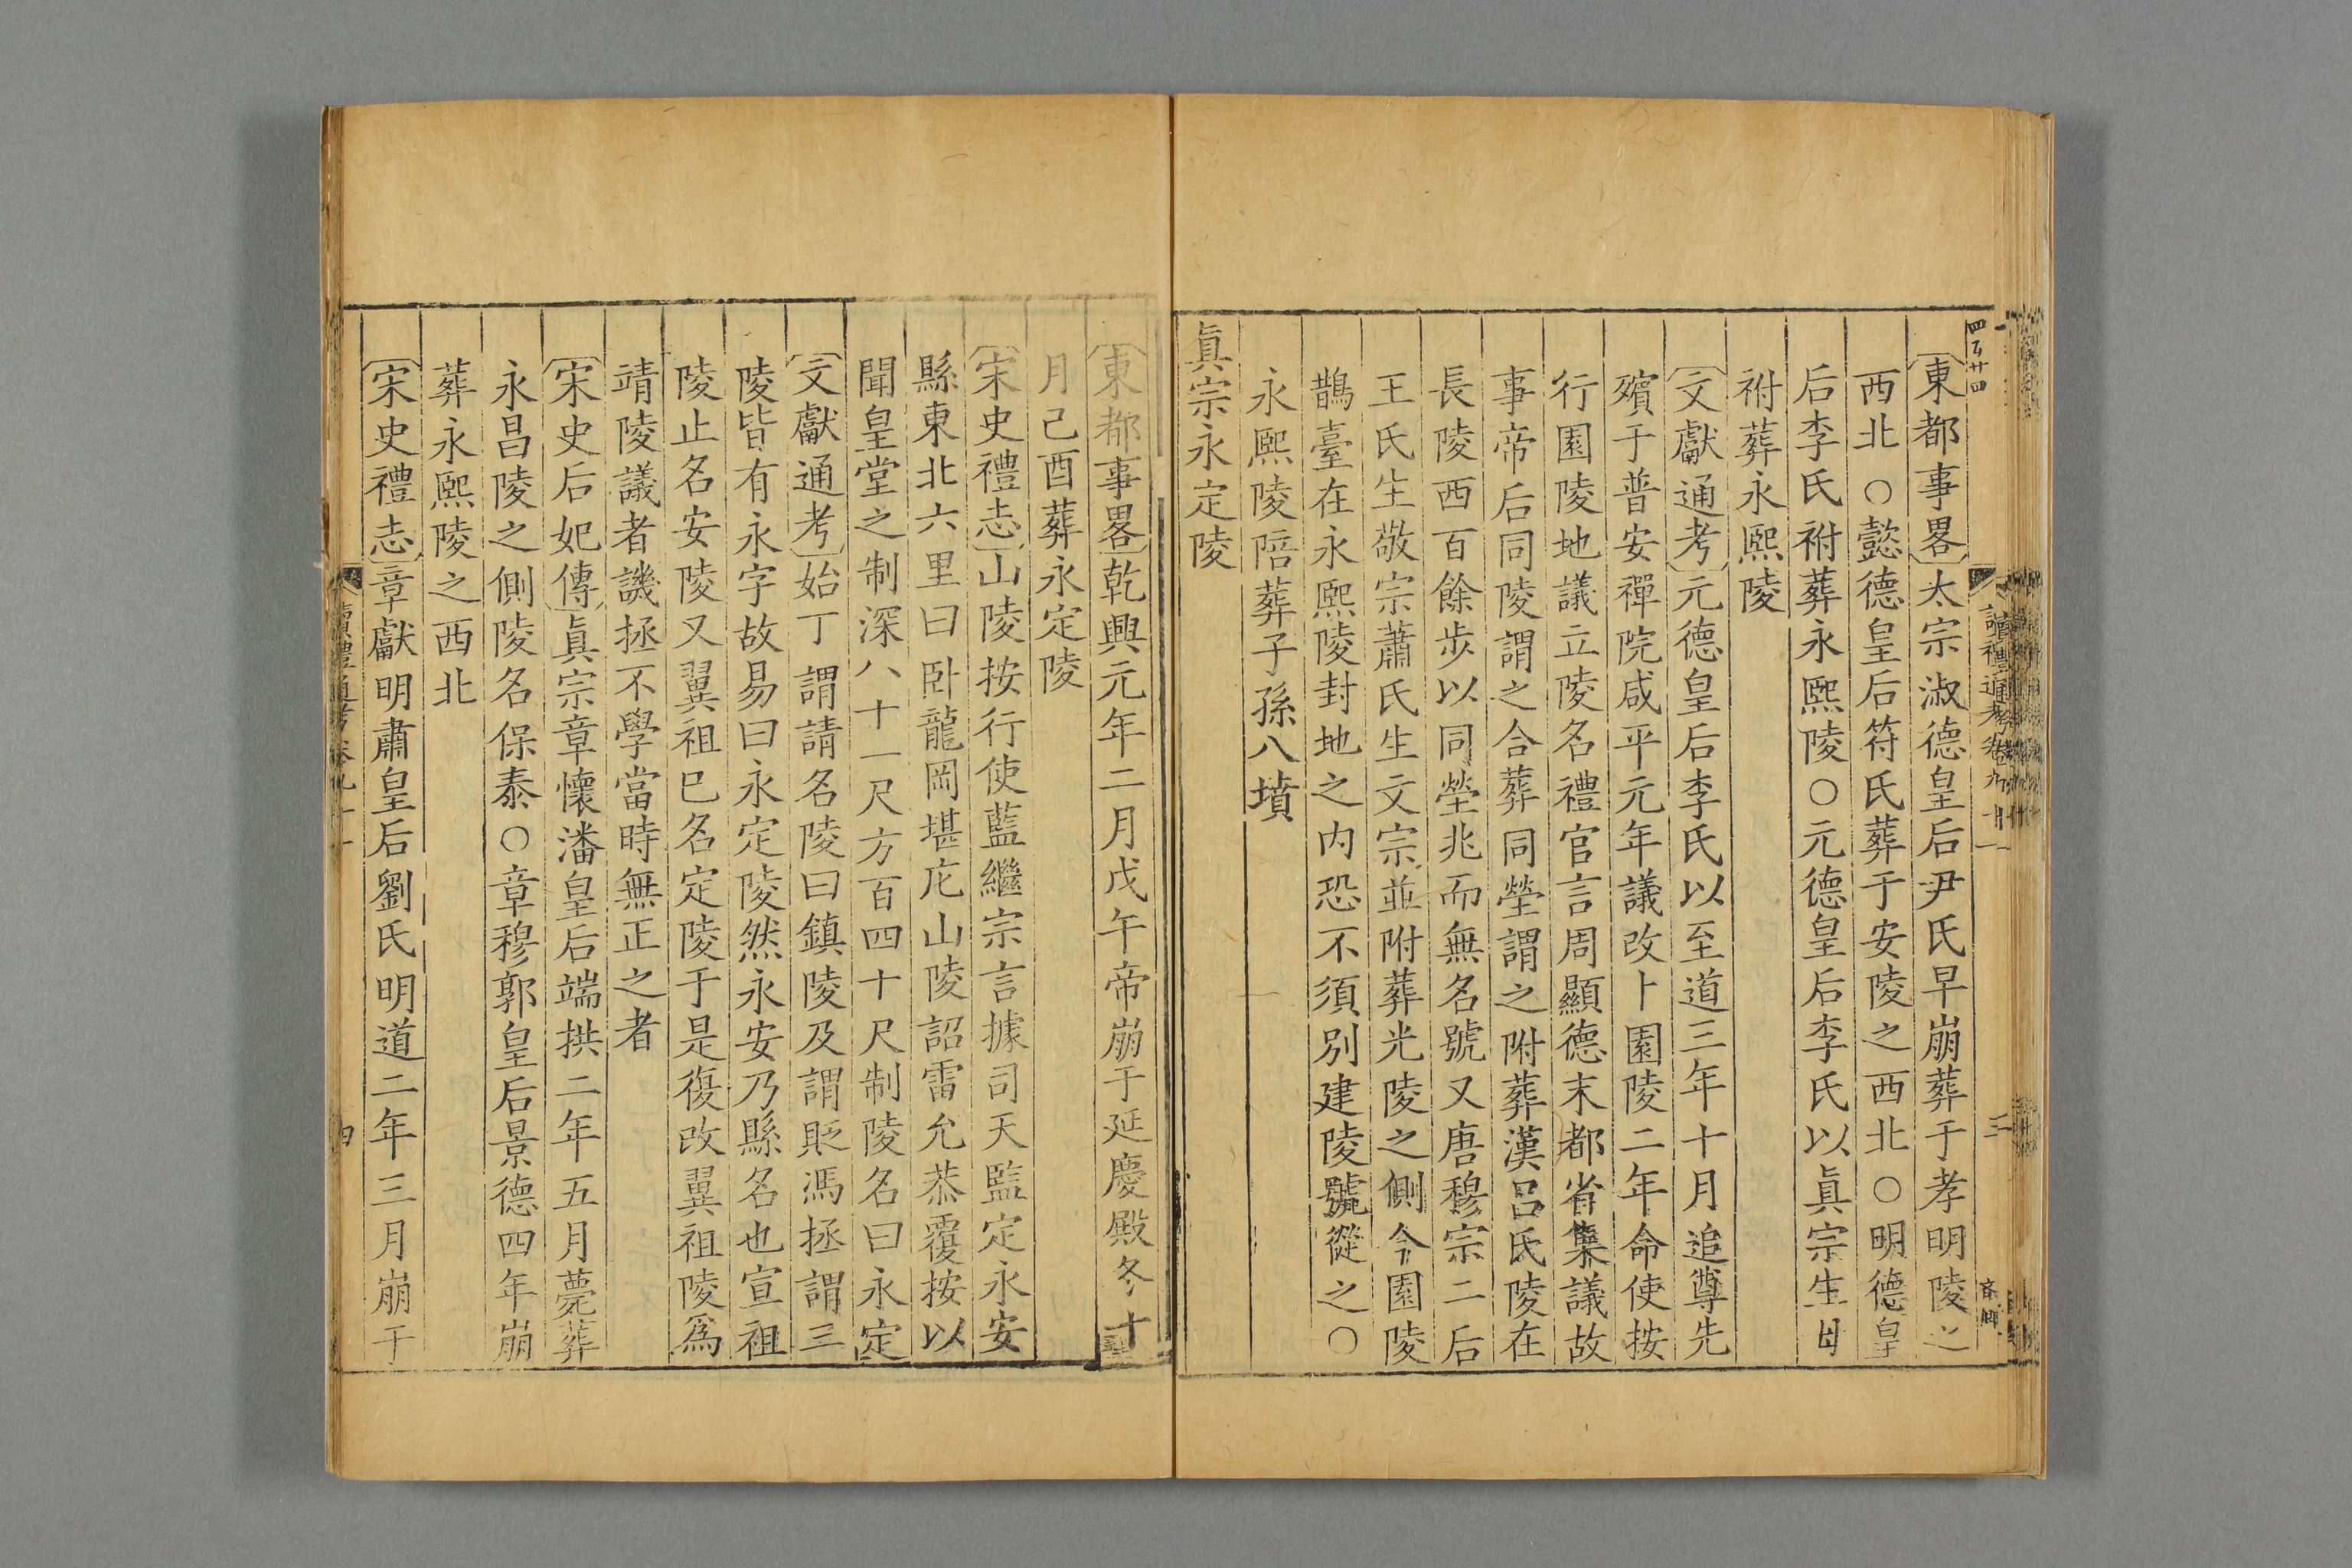 〔東都事畧〕太宗淑德皇后尹氏早崩葬于孝明陵之
西北○懿德皇后符氏葬于安陵之西北○明德皇
后李氏祔葬永熙陵○元德皇后李氏以眞宗生母
祔葬永熙陵
〔文獻通考〕元德皇后李氏以至道三年十月追尊先
殯于普安禪院咸平元年議改卜園陵二年命使按
行園陵地議立陵名禮官言周顯德末都省集議故
事帝后同陵謂之合葬同塋謂之附葬漢呂氏陵在
長陵西百餘步以同塋兆而無名號又唐穆宗二后
王氏生敬宗蕭氏生文宗並附葬光陵之側今園陵
鵲臺在永熙陵封地之內恐不須別建陵號從之○
永熙陵陪葬子孫八墳
眞宗永定陵
〔東都事畧〕乾興元年二月戊午帝崩于延慶殿冬十
月己酉葬永定陵
〔宋史禮志〕山陵按行使藍繼宗言據司天監定永安
縣東北六里曰卧龍岡堪庀山陵詔雷允恭覆按以
聞皇堂之制深八十一尺方百四十尺制陵名曰永定
〔文獻通考〕始丁謂請名陵曰鎮陵及謂貶馮拯謂三
陵皆有永字故易曰永定陵然永安乃縣名也宣祖
陵止名安陵又翼祖巳名定陵于是復改翼祖陵爲
靖陵議者譏拯不學當時無正之者
〔宋史后妃傳〕眞宗章懷潘皇后端拱二年五月薨葬
永昌陵之側陵名保泰○章穆郭皇后景德四年崩
葬永熙陵之西北
〔宋史禮志〕章獻明肅皇后劉氏明道二年三月崩于
讀禮通考卷九十一
四